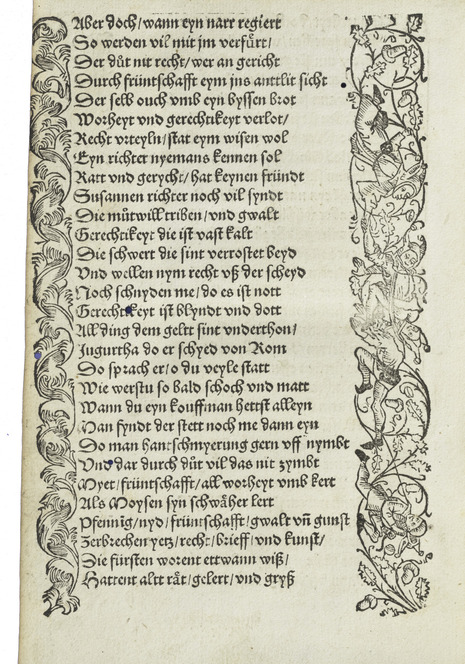 Aber doch/wann eyn narr regiert
So werden vil mit jm verfuͤrt/
Der duͦt nit recht/wer an gericht
Durch früntschafft eym jns anttlit sicht
Der selb ouch vmb eyn byssen brot
Worheyt vnd gerechtikeyt verlot/
Recht vrteyln/stat eym wisen wol
Eyn richter nyemans kennen sol
Ratt vnd gerycht/hat keynen fründt
Susannen richter noch vil syndt
Die muͦtwill triben/vnd gwalt
Gerechtikeyt die ist vast kalt
Die schwert die sint verrostet beyd
Vnd wellen nym recht vß der scheyd
Noch schnyden me/do es ist nott
Gerechtikeyt ist blyndt vnd dott
All ding dem geltt sint vnderthon/
Jugurtha do er schyed von Rom
Do sprach er/o du veyle statt
Wie werstu so bald schoch vnd matt
Wann du eyn kouffman hettst alleyn
Man fyndt der stett noch me dann eyn
Do man hantschmyerung gern vff nymbt
Vnd dar durch duͦt vil das nit zymbt
Myet/früntschafft/all worheyt vmb kert
Als Moysen syn schwaͤher lert
Pfennig/nyd/früntschafft/gwalt vn̄ gunst
Zerbrechen yetz/recht/brieff/vnd kunst/
Die fürsten worent ettwann wiß/
Hattent altt raͤt/gelert/vnd gryß